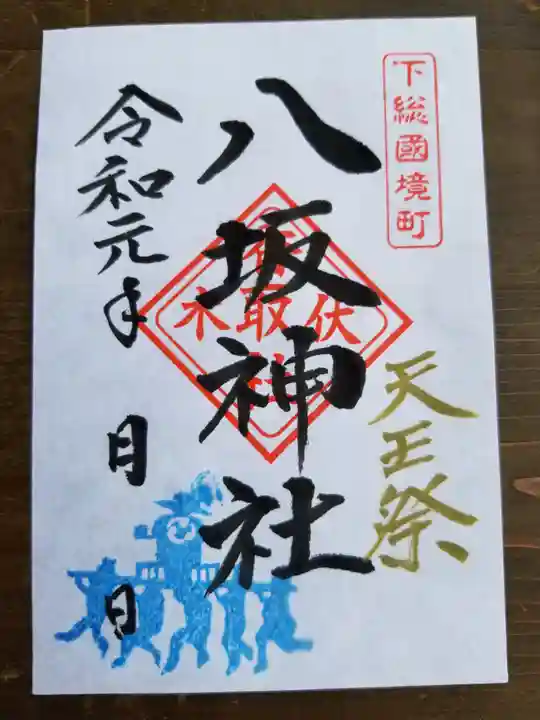 下総國境町
天王祭
八坂神社
香取
伏
木
令和元年
月
日